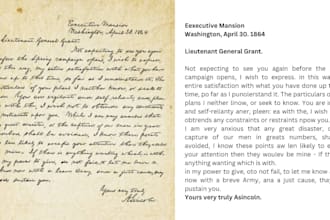 Executive Mansion
Washington, April 30. 1864
Lieutenant General Grant.
Not expecting to see you again
before the Spring campaign opens, I wish to express,
in this way, my entire satisfaction with what you have
done up to this time, so far as I understand it. The
particulars of your plans I neither know, or seek to
know. You are vigilant and self-reliant; and, pleased
with this, I wish not to obtrude any
constraints upon you. While I am very anxious that
any great disaster, or the capture of our men in great
numbers, shall be avoided, I know these points
are less likely to escape your attention than they would
be mine. If there is anything wanting which is
in my power to give, do not fail to let me know it.
And now with a brave Army, and a just cause, may
God sustain you.
Yours very truly
Eexecutive Mansion
Washington, April 30. 1864
Lieutenant General Grant.
Not expecting to see you again before the
campaign opens, I wish to express. In this wa
entire satisfaction with what you have done up t
time, po far as I understand it. The particulars o
plans I neither lnow, or seek to know. You are
and self-reliant; aner, pleer; ea with the, I wish
obtrends any constraints or restraints npov you.
I am very anxious that any great disaster, o
capture of our men in greats numbers, sha
avoided, I know these points aw len likely to e
your attention then they woulev be mine - if th
anything waiting which is with.
in my power to give, oto not fail, to let me know
now with a breve Army, ana a just cause, tha
pustain you.
Yours very truly Asincoln.